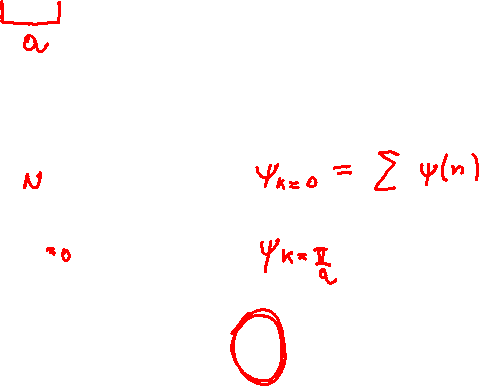 a
N ψk=0 = ∑ ψ(n)
=0 ψk=π/a